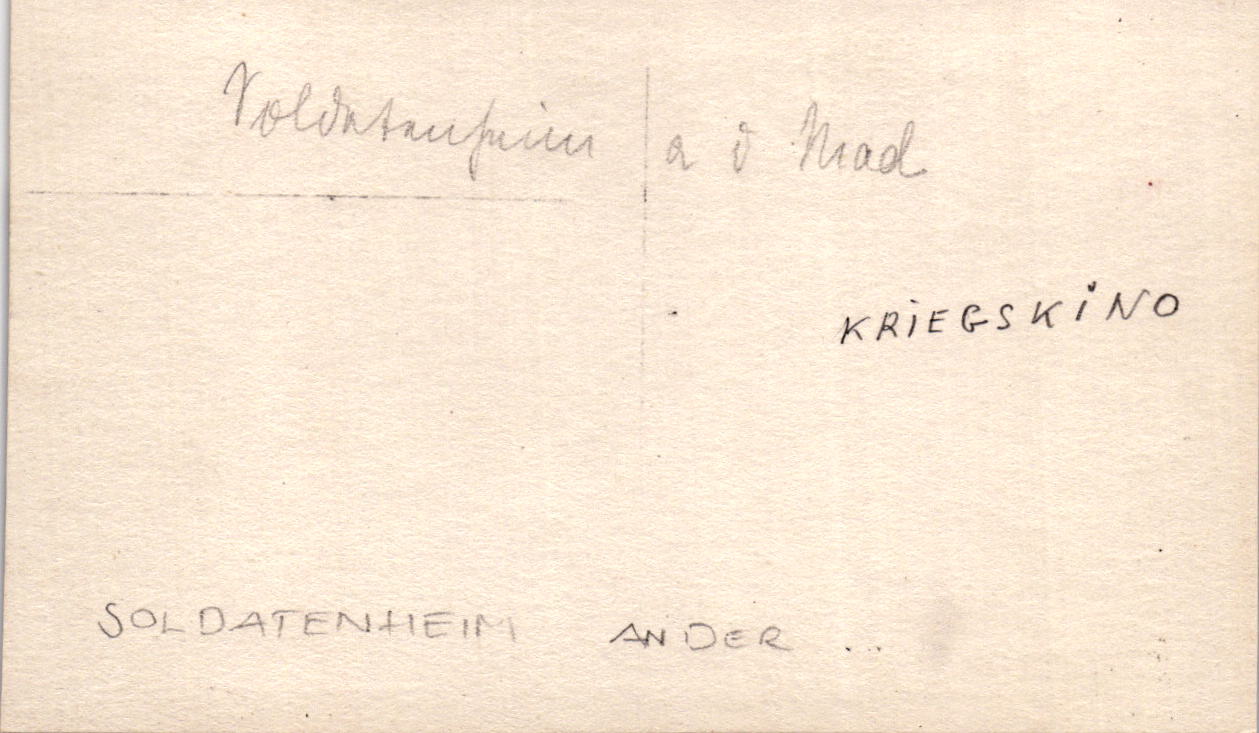 Soldatenheim a d Mad
KRIEGSKINO
SOLDATENHEIM AN DER ...